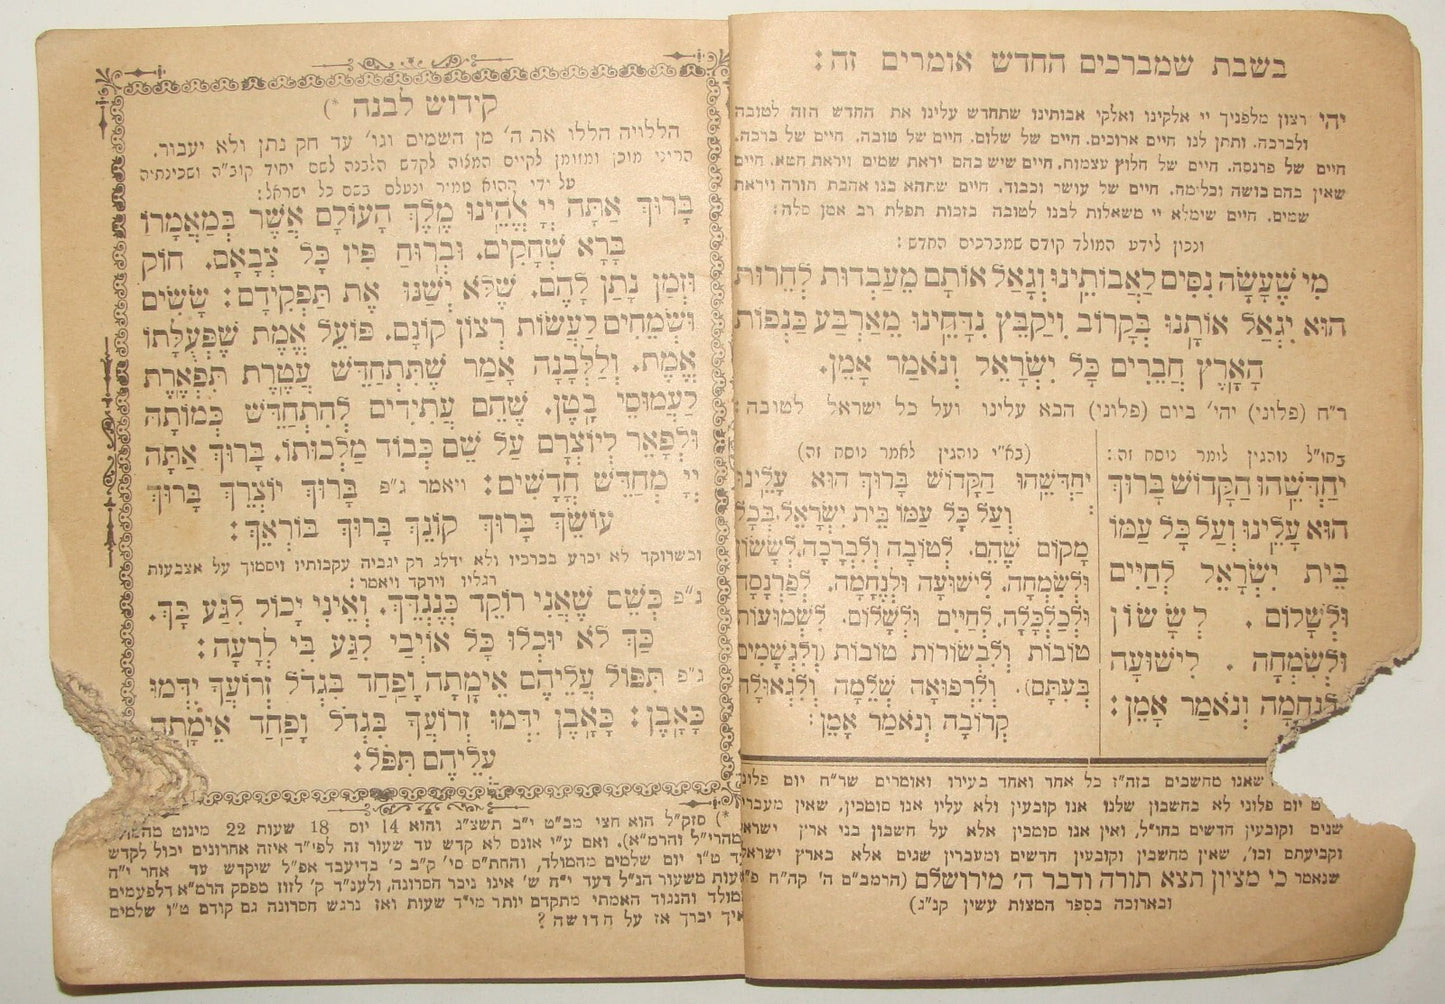 בשבת שמברכים החדש אומרים זה:
יהי רצון מלפניך יי אלקינו ואלקי אבותינו שתחדש עלינו את החדש הזה לטובה
ולברכה. ותתן לנו חיים ארוכים. חיים של שלום. חיים של טובה. חיים של ברכה.
חיים של פרנסה. חיים של חלוץ עצמות. חיים שיש בהם יראת שמים ויראת חטא. חיים
שאין בהם בושה וכלימה. חיים של עושר וכבוד. חיים שתהא בנו אהבת תורה ויראת
שמים. חיים שימלא יי משאלות לבנו לטובה בזכות תפלת רב אמן סלה:
ונכון לידע המולד קודם שמברכים החדש:
מִי שֶׁעָשָׂה נִסִּים לַאֲבוֹתֵינוּ וְגָאַל אוֹתָם מֵעַבְדוּת לְחֵרוּת
הוּא יִגְאַל אוֹתָנוּ בְּקָרוֹב וִיקַבֵּץ נִדָּחֵינוּ מֵאַרְבַּע כַּנְפוֹת
הָאָרֶץ חֲבֵרִים כָּל יִשְׂרָאֵל וְנֹאמַר אָמֵן.
ר״ח (פלוני) יהי׳ ביום (פלוני) הבא עלינו ועל כל ישראל לטובה:
בחו״ל נוהגין לומר נוסח זה:
יְחַדְּשֵׁהוּ הַקָּדוֹשׁ בָּרוּךְ
הוּא עָלֵינוּ וְעַל כָּל עַמּוֹ
בֵּית יִשְׂרָאֵל לְחַיִּים
וּלְשָׁלוֹם . לְשָׂשׂוֹן
וּלְשִׂמְחָה . לִישׁוּעָה
וּלְנֶחָמָה וְנֹאמַר אָמֵן:
(בא״י נוהגין לאמר נוסח זה)
יְחַדְּשֵׁהוּ הַקָּדוֹשׁ בָּרוּךְ הוּא עָלֵינוּ
וְעַל כָּל עַמּוֹ בֵּית יִשְׂרָאֵל. בְּכָל
מָקוֹם שֶׁהֵם. לְטוֹבָה וְלִבְרָכָה. לְשָׂשׂוֹן
וּלְשִׂמְחָה. לִישׁוּעָה וּלְנֶחָמָה. לְפַרְנָסָה
וּלְכַלְכָּלָה. לְחַיִּים וּלְשָׁלוֹם. לִשְׁמוּעוֹת
טוֹבוֹת וְלִבְשׂוֹרוֹת טוֹבוֹת (וְלִגְשָׁמִים
בְּעִתָּם). וְלִרְפוּאָה שְׁלֵמָה וְלִגְאוּלָּה
קְרוֹבָה וְנֹאמַר אָמֵן:
שאנו מחשבים בזה״ז כל אחד ואחד בעירו ואומרים שר״ח יום פלוני
יום פלוני לא בחשבון שלנו אנו קובעין ולא עליו אנו סומכין, שאין מעברין
שנים וקובעין חדשים בחו״ל, ואין אנו סומכין אלא על חשבון בני ארץ ישראל
וקביעתם וכו׳, שאין מחשבין וקובעין חדשים ומעברין שנים אלא בארץ ישראל
שנאמר כי מציון תצא תורה ודבר ה׳ מירושלם (הרמב״ם ה׳ קה״ח
ובארוכה בספר המצות עשין קנ״ג)
קידוש לבנה *)
הללויה הללו את ה׳ מן השמים וגו׳ עד חק נתן ולא יעבור.
הריני מוכן ומזומן לקיים המצוה לקדש הלבנה לשם יחיד קוב״ה ושכינתיה
על ידי ההוא טמיר ונעלם בשם כל ישראל:
בָּרוּךְ אַתָּה יְיָ אֱלֹהֵינוּ מֶלֶךְ הָעוֹלָם אֲשֶׁר בְּמַאֲמָרוֹ
בָּרָא שְׁחָקִים. וּבְרוּחַ פִּיו כָּל צְבָאָם. חוֹק
וּזְמַן נָתַן לָהֶם. שֶׁלֹּא יְשַׁנּוּ אֶת תַּפְקִידָם: שָׂשִׂים
וּשְׂמֵחִים לַעֲשׂוֹת רְצוֹן קוֹנָם. פּוֹעֵל אֱמֶת שֶׁפְּעֻלָּתוֹ
אֱמֶת. וְלַלְּבָנָה אָמַר שֶׁתִּתְחַדֵּשׁ עֲטֶרֶת תִּפְאֶרֶת
לַעֲמוּסֵי בָטֶן. שֶׁהֵם עֲתִידִים לְהִתְחַדֵּשׁ כְּמוֹתָהּ
וּלְפָאֵר לְיוֹצְרָם עַל שֵׁם כְּבוֹד מַלְכוּתוֹ. בָּרוּךְ אַתָּה
יְיָ מְחַדֵּשׁ חֳדָשִׁים: ויאמר ג״פ בָּרוּךְ יוֹצְרֵךְ בָּרוּךְ
עוֹשֵׂךְ בָּרוּךְ קוֹנֵךְ בָּרוּךְ בּוֹרְאֵךְ:
וכשרוקד לא יכרע בברכיו ולא ידלג רק יגביה עקבותיו ויסמוך על אצבעות
רגליו וירקד ויאמר:
ג״פ כְּשֵׁם שֶׁאֲנִי רוֹקֵד כְּנֶגְדֵּךְ. וְאֵינִי יָכוֹל לִגַּע בָּךְ.
כַּךְ לֹא יוּכְלוּ כָּל אוֹיְבַי לִגַּע בִּי לְרָעָה:
ג״פ תִּפּוֹל עֲלֵיהֶם אֵימָתָה וָפַחַד בִּגְדֹל זְרוֹעֲךָ יִדְּמוּ
כָּאָבֶן: כָּאָבֶן יִדְּמוּ זְרוֹעֲךָ בִּגְדֹל וָפַחַד אֵימָתָה
עֲלֵיהֶם תִּפֹּל:
*) סזק״ל הוא חצי מכ״ט י״ב תשצ״ג והוא 14 יום 18 שעות 22 מינוט מהמולד
(מהרי״ל והרמ״א). ואם ע״י אונס לא קדש עד שעור זה לפי״ד איזה אחרונים יכול לקדש
עד ט״ו יום שלמים מהמולד, והחת״ס סי׳ ק״ב כ׳ בדיעבד אפ״ל שיקדש עד אחר י״ח
שעות משעור הנ״ל דעד י״ח ש׳ אינו ניכר חסרונה, ולענ״ד ק׳ לזוז מפסק הרמ״א דלפעמים
המולד והנגוד האמתי מתקדם יותר מי״ד שעות ואז נרגש חסרונה גם קודם ט״ו שלמים
ואיך יברך אז על חדושה?